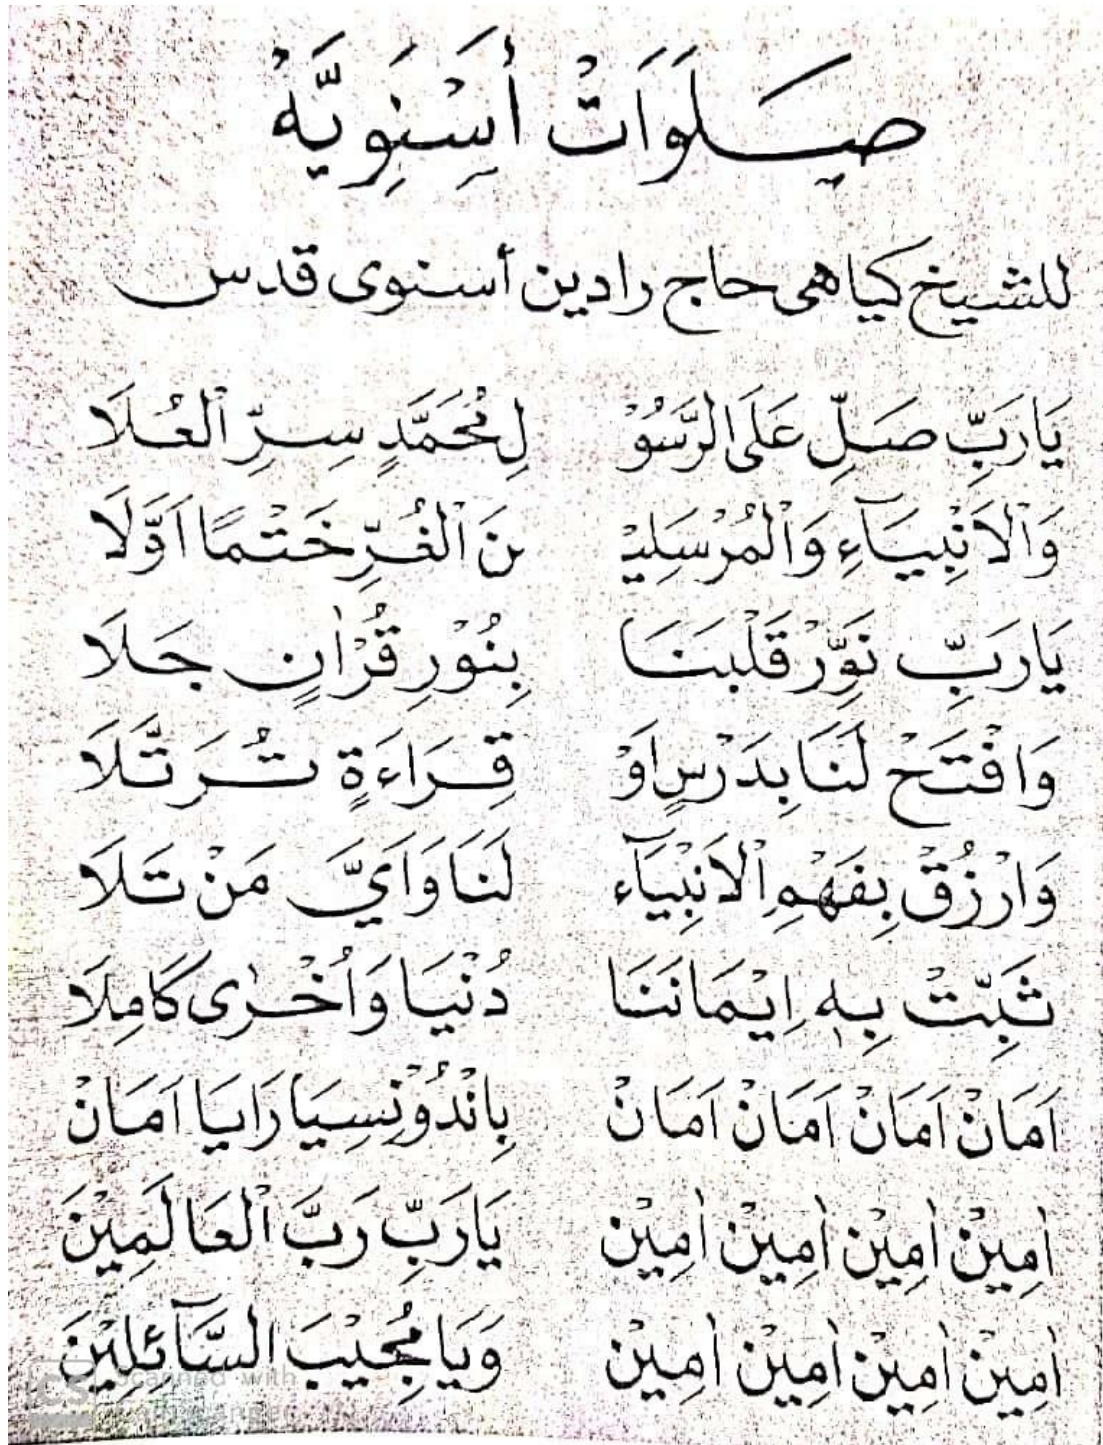 صَلَوَاتْ أَسْنَوِيَّهْ
للشيخ كياهى حاج رادين أسنوى قدس
يَارَبِّ صَلِّ عَلَى الرَّسُوْ لِ مُحَمَّدٍ سِرِّ الْعُلَا
وَالْاَنْبِيَآءِ وَالْمُرْسَلِيْ نَ الْغُرِّ خَتْمًا اَوَّلَا
يَارَبِّ نَوِّرْ قَلْبَنَا بِنُوْرِ قُرْاٰنٍ جَلَا
وَافْتَحْ لَنَا بِدَرْسٍ اَوْ قِرَاءَةٍ تُرَتَّلَا
وَارْزُقْ بِفَهْمِ الْاَنْبِيَآء لَنَا وَاَيَّ مَنْ تَلَا
ثَبِّتْ بِهٖ اِيْمَانَنَا دُنْيَا وَاُخْرٰى كَامِلَا
اَمَانْ اَمَانْ اَمَانْ اَمَانْ بِانْدُوْنِسِيَا رَايَا اَمَانْ
اٰمِيْن اٰمِيْن اٰمِيْن اٰمِيْن يَارَبِّ رَبَّ الْعَالَمِيْنَ
اٰمِيْن اٰمِيْن اٰمِيْن اٰمِيْن وَيَا مُجِيْبَ السَّآئِلِيْنَ
CS Scanned with